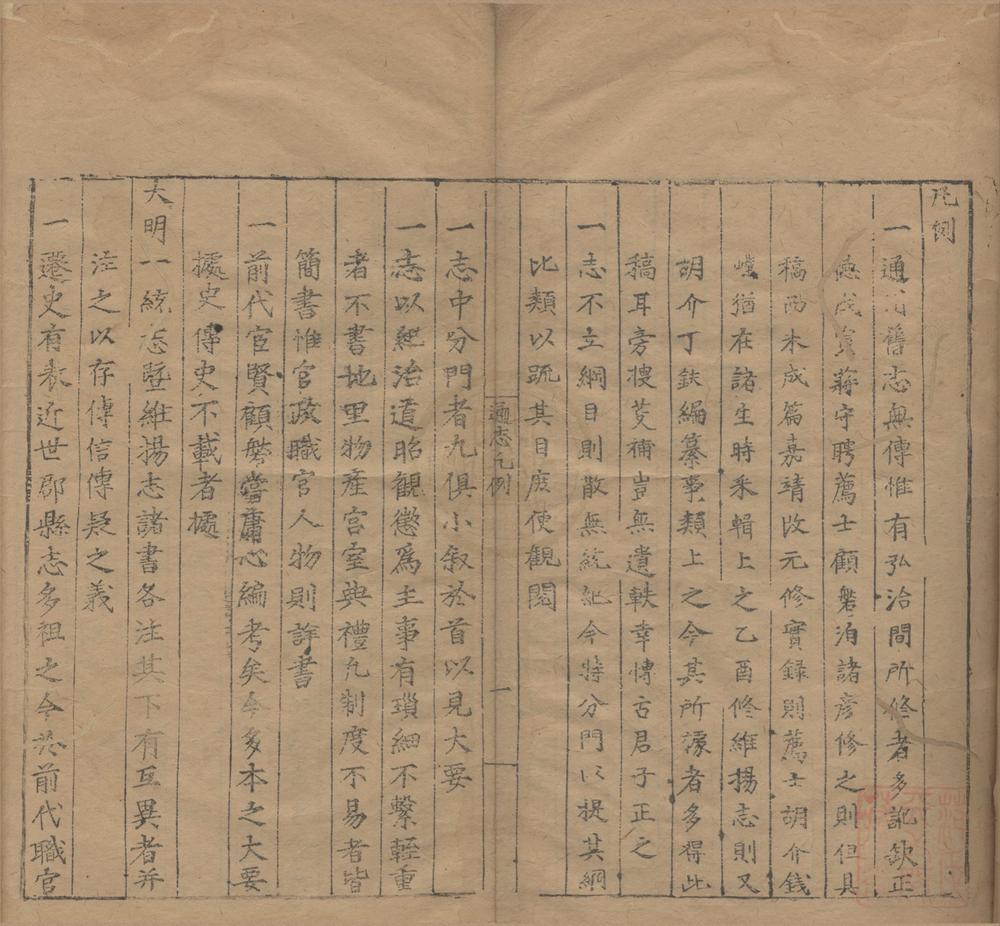 凡例
一通州舊志無傳惟有弘治間所修者多訛缺正
德戊寅蔣守聘薦士顧磐洎諸彥修之則但具
稿而未成篇嘉靖改元修實録則薦士胡介錢
㠓猶在諸生時采輯上之乙酉修維揚志則又
胡介丁鈇編纂事類上之今其所㨿者多得此
稿耳旁搜芟補豈無遺軼幸愽古君子正之
一志不立綱目則散無統紀今特分門以提其綱
比類以䟽其目庶使觀閱
通志凡例
一
一志中分門者九俱小叙於首以見大要
一志以紀治道昭觀懲爲主事有瑣細不繋輕重
者不書地里物産宮室典禮凡制度不易者皆
簡書惟官政職官人物則詳書
一前代宦賢顧磐嘗庸心編考矣今多本之大要
據史傳史不載者據
大明一統志曁維揚志諸書各注其下有互異者并
注之以存傳信傳疑之義
一遷史有表近世郡縣志多祖之今前代職官